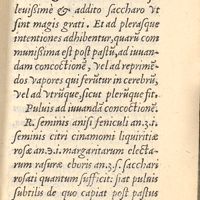 leuissimè & addito saccharo vt
sint magis grati. Et ad plerasque
intentiones adhibentur, quarū com
munissima est post pastū, ad iuuan-
dam concoctionē, vel ad reprimē-
dos vapores qui ferūtur in cerebrū,
vel ad vtrūque, sicut plerūque fit.
Puluis ad iuuandā concoctionē.
R. seminis anisi feniculi an.ʒ.i.
seminis citri cinamomi liquiritiæ
rosæ an.϶.i. margaritarum electa-
rum rasuræ eboris an.ʒ.s. sacchari
rosati quantum sufficit: fiat puluis
subtilis de quo capiat post pastus